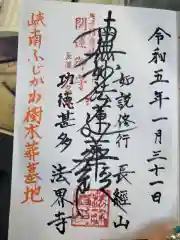 令和五年一月三十一日
如説修行 長經山
南無妙法蓮華経
功徳甚多 法界寺
峡南ふじかわ樹木葬墓地